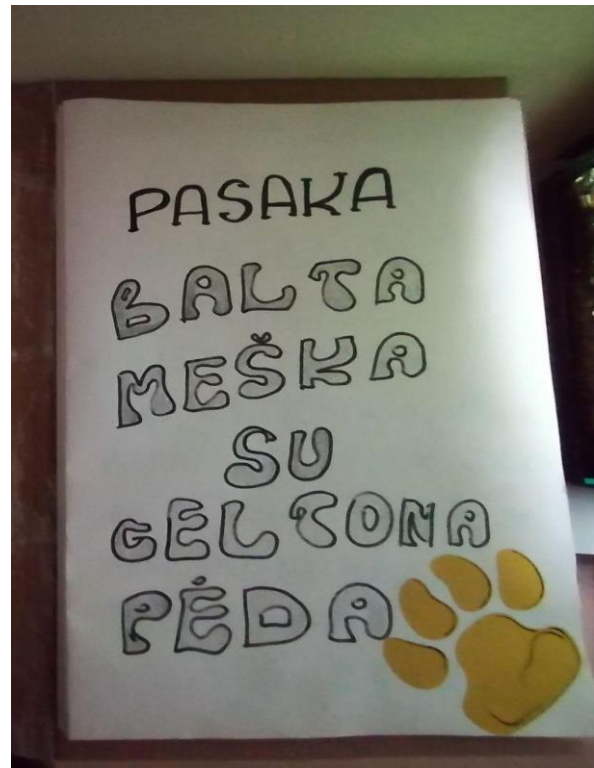 PASAKA
BALTA
MEŠKA
SU
GELTONA
PĖDA